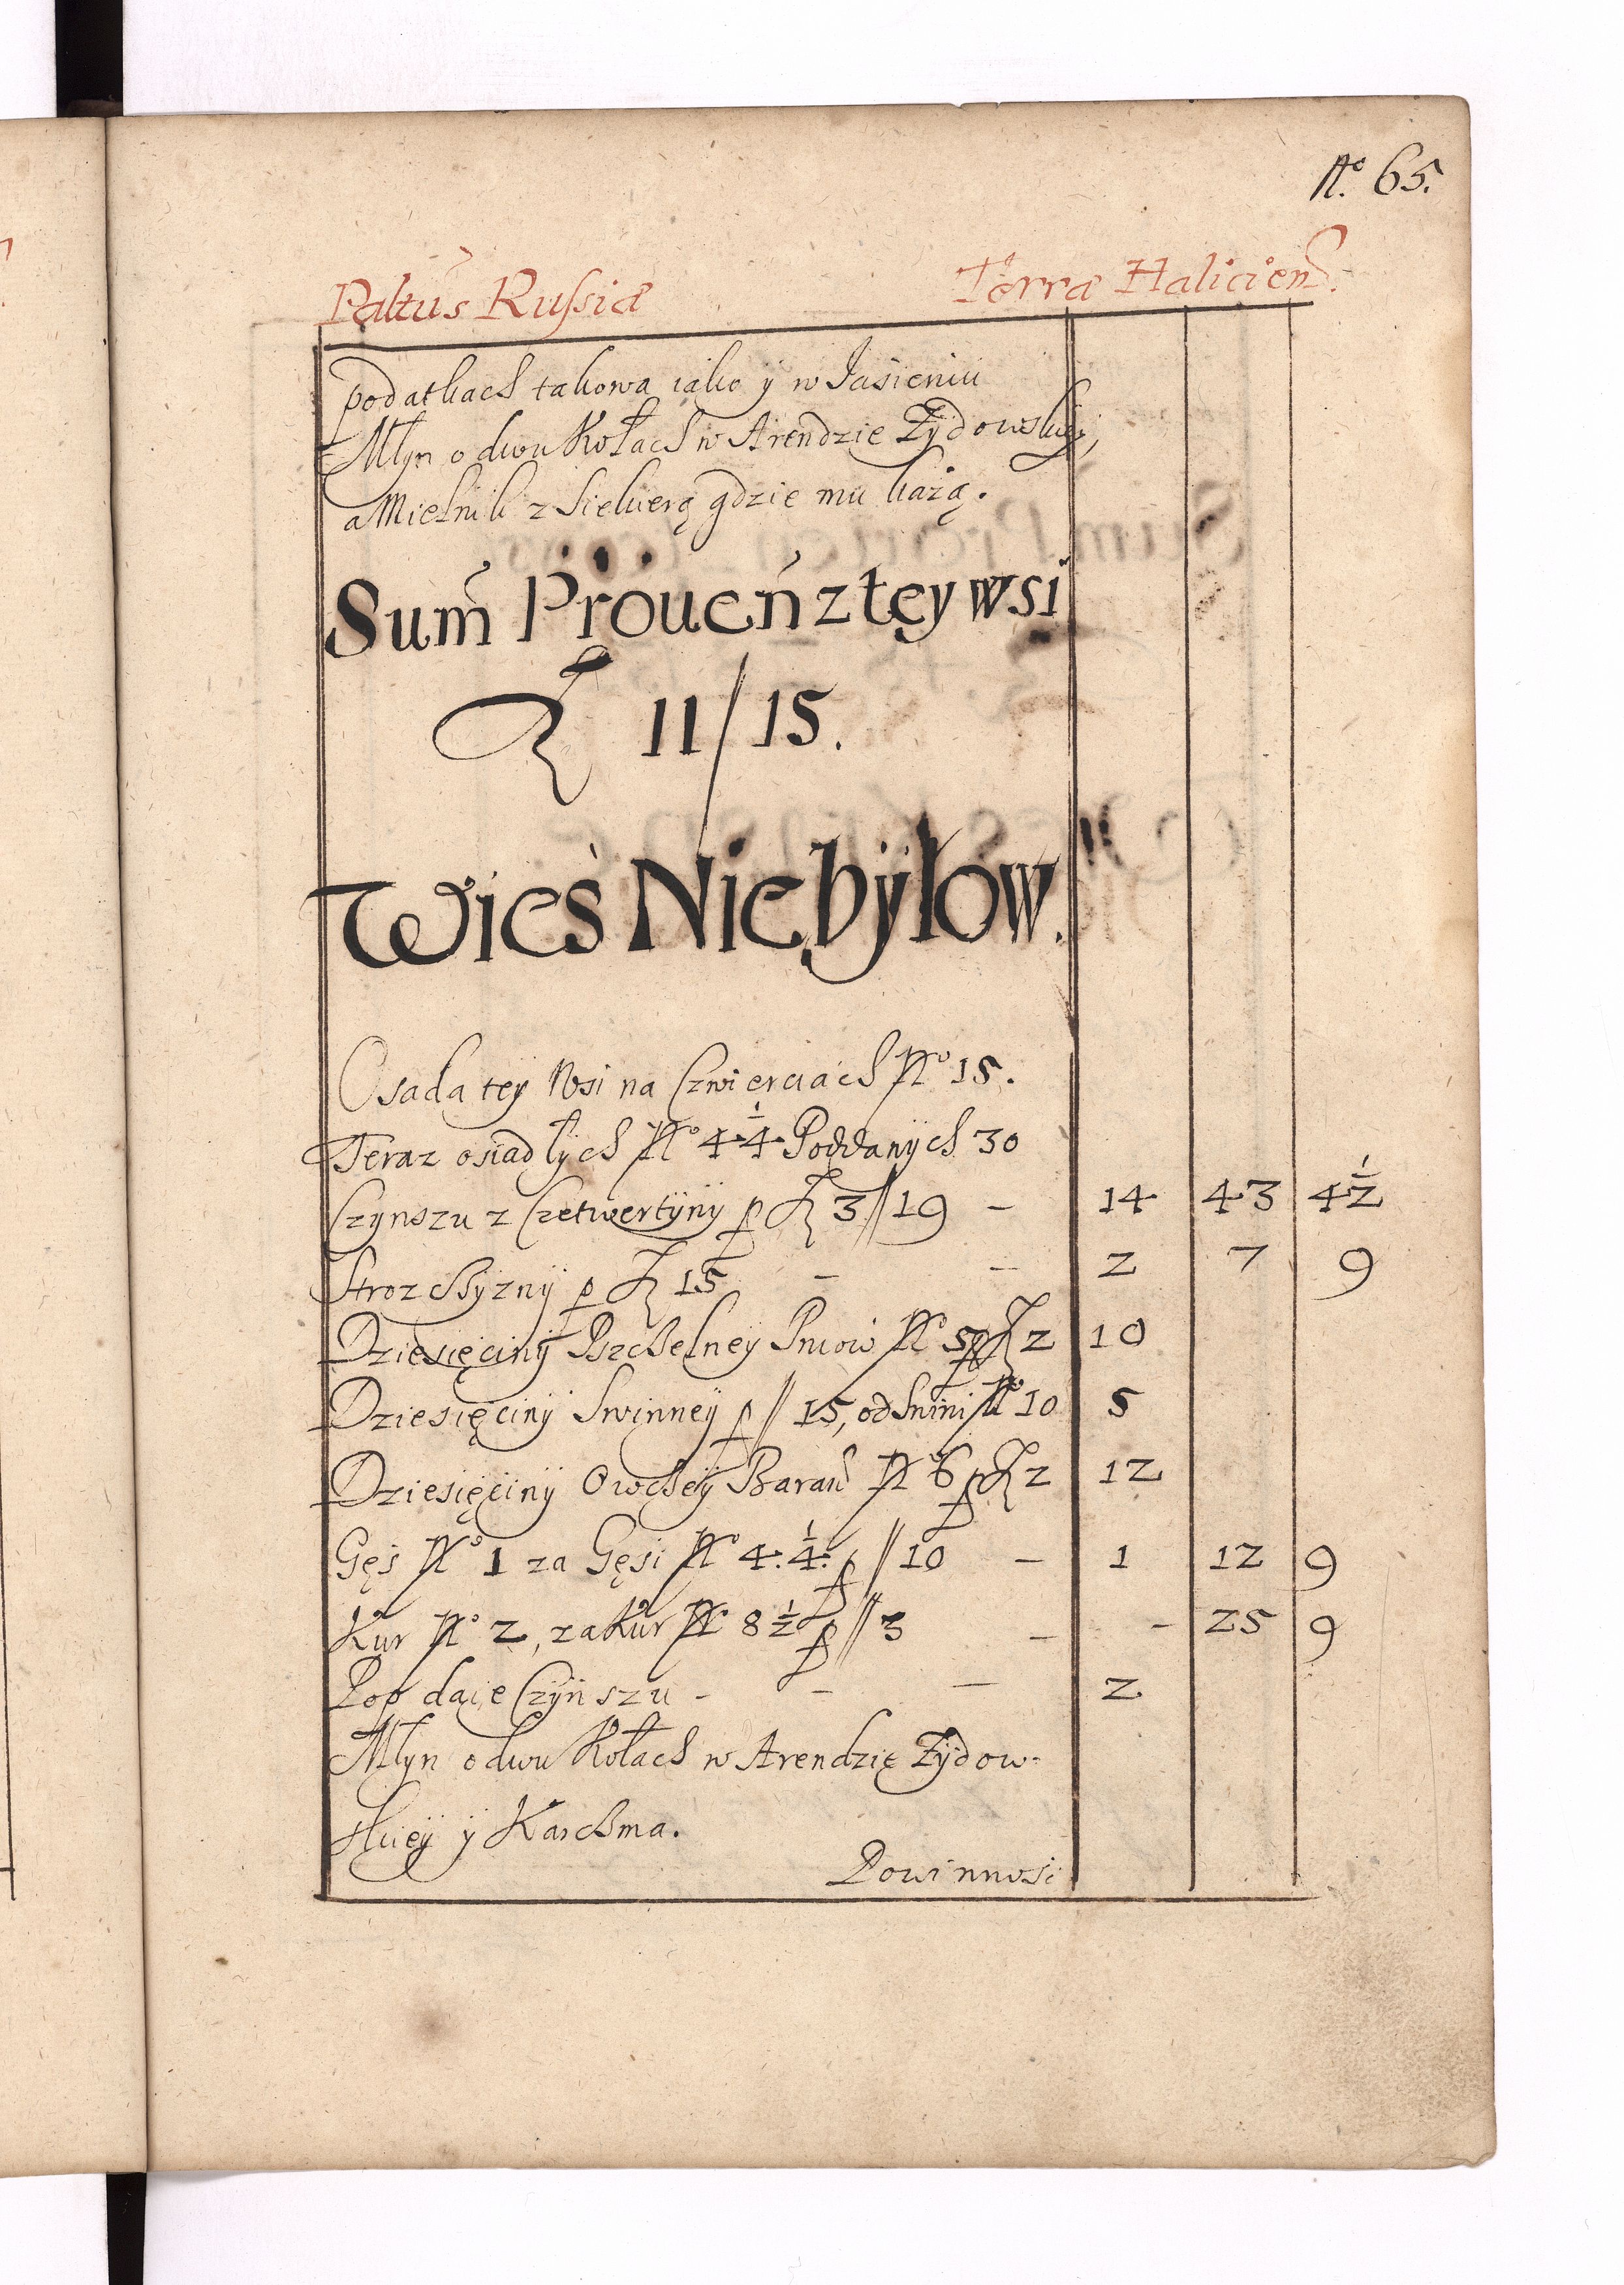 No. 65.
Paltus Russiæ Terræ Haliciens.
podatkach takowa iako ÿ w Jasieniu
Młyn o dwu Kołach w Arendzie Żÿdowskieÿ,
a Mielnik z siekierą gdzie mu każą.
Sum̃ Prouen̄ z tęy wsi
Zł 11/15.
Wieś Niebÿłow.
Osada teÿ Wsi na Czwierciach No 15.
Teraz osiadłÿch No 4 1/4 Poddanÿch 30
Czynszu z Czetwertÿnÿ p Zł 3 // 19 – 14 43 4 1/2
Strozchÿznÿ p Zł 15 – – 2 7 9
Dziesięcinÿ Pszchelneÿ Pniow No 5 p Zł 2 10
Dziesięcinÿ Swinneÿ p // 15, od Swini No 10 5
Dziesięcinÿ Owcheÿ Baranow No 6 p Zł 2 12
Gęś No 1 za Gęsi No 4. 1/4. p // 10 – 1 12 9
Kur No 2, za Kur No 8 1/2 p // 3 – - 25 9
Pop daie Czÿnszu - – — 2
Młyn o dwu Kołach w Arendzie Żÿdow-
skieÿ ÿ Karchma.
Powinnosc